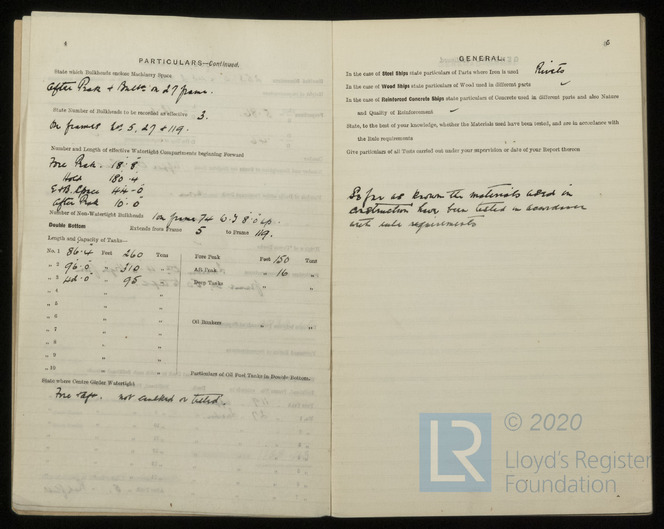 4
PARTICULARS—Continued.
State which Bulkheads enclose Machinery Space
After Peak + Bulkd on 27 frame.
State Number of Bulkheads to be recorded as effective 3.
On frames 5, 27 & 119.
Number and Length of effective Watertight Compartments beginning Forward
Fore Peak. 18'.8"
Hold 180.4
E&B. Space 44-0
After Peak 10.0
Number of Non-Watertight Bulkheads 1 on frame 74
Double Bottom Extends from Frame 5 to Frame 119.
Length and Capacity of Tanks—
No. 1 86.4 Feet 260 Tons
„ 2 96.0 „ 310 „
„ 3 42.0 „ 95 „
„ 4 „ „
„ 5 „ „
„ 6 „ „
„ 7 „ „
„ 8 „ „
„ 9 „ „
„ 10 „ „
Fore Peak Feet 150 Tons
Aft Peak „ 16 „
Deep Tanks „ „
Oil Bunkers „ „
Particulars of Oil Fuel Tanks in Double Bottom.
State where Centre Girder Watertight
Fore & aft. not caulked or tested.
GENERAL.
In the case of Steel Ships state particulars of Parts where Iron is used Rivets
In the case of Wood Ships state particulars of Wood used in different parts
In the case of Reinforced Concrete Ships state particulars of Concrete used in different parts and also Nature
and Quality of Reinforcement
State, to the best of your knowledge, whether the Materials used have been tested, and are in accordance with
the Rule requirements
Give particulars of all Tests carried out under your supervision to date of your Report thereon
So far as known the materials used in
construction have been tested in accordance
with rule requirements
© 2020
LR
Lloyd's Register
Foundation